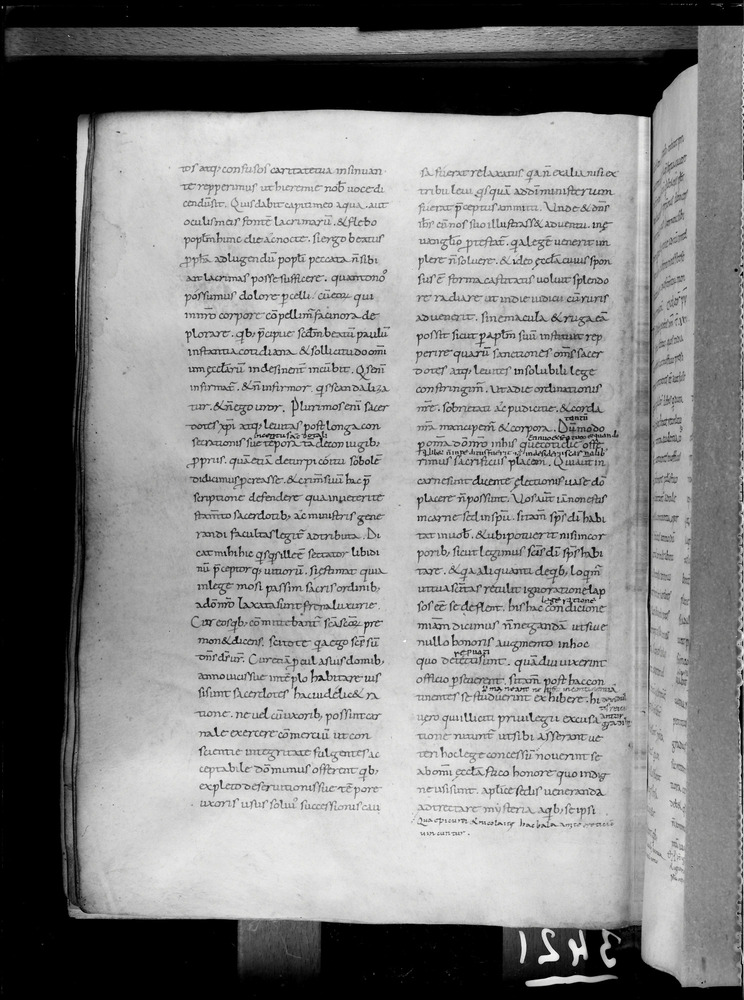 tos atq; confusos caritate tua insinuan
te repperimus ut hieremie nob voce di
cendū sit. Quis dabit capiti meo aqua. aut
oculis meis fontē lacrimarū. & flebo
poplm hunc die ac nocte. si ergo beatus
ppha ad lugendū popli peccata n̄ sibi
ait lacrimas posse sufficere. quanto nos
possumus dolore pcelli. cū eorū qui
in nr̄o corpore cōpellim̄ facinora de
plorare. qb; p̄cipue scd̄m beatū paulū
instantia cotidiana & sollicitudo omī
um ecclarū indesinent̄ incūbit. Q̇s enī
infirmat̄. & n̄ infirmor. q̇s scandaliza
tur. & n̄ ego uror. Plurimos enī sacer
dotes xp̄i atq; levitas post longa con
secrationis sue tēpora tā de coniugib;
pprus. quā etiā de turpi coitu sobolē
didicimus pcreasse. & crim̄ suū hac p̄
scriptione defendere quia in veteri te
stam̄to sacerdotib; ac ministris gene
randi facultas legit̄ adtributa. Di
cat mihi hic q̇sq̇s ille ē sectator libidi
nū p̄ceptorq; vitiorū. si estimat quia
in lege mosi passim sacris ordinib;
ad ōm̄o laxata sunt frena luxurie.
Cur eos qb; cōmittebant̄ scā scorū pre
monē & dicens. scitote qa ego scs sū
dn̄s ds ur̄. Cur etiā pcul a suis domib;
anno vicis sue in tēplo habitare ius
si sunt sacerdotes hac videlic& ra
tione. ne vel cū uxorib; possint car
nale exercere cōmerciū ut con
scientie integritate fulgentes ac
ceptabile dō munus offerent qb;
expleto deservitionis sue tēpore
uxoris usus solius successionis cau
sa fuerat relaxatus qa n̄ ex alia nisi ex
tribu levi q̇squā ad dī ministerium
fuerat p̄ceptus ammitti. Unde & dn̄s
ihs cū nos suo illustrass& adventu. in e
vangl̄io ptestat̄. qa legē venerit im
plere n̄ solvere. & ideo eccl̄a cuius spon
sus ē forma castitatis voluit splendo
re radiare ut in die iudicii cū rursus
advenerit. sine macula & ruga eā
possit sicut p aplm suū instituit rep
perire quarū sanctiones om̄s sacer
dotes atq; levites insolubili lege
constringim̄. ut a die ordinationis
nr̄e. sobrietati ac pudicitie. & corda
nr̄a mancipem̄ & corpora. Dū modo
p om̄a dō nr̄o in his que cotidie offe
rimus sacrificiis placeam̄. Qui aut̄ in
carne sunt dicente electionis vase dō
placere n̄ possunt. Vos aut̄ iā non estis
in carne sed in spū. si tam̄ sps dī habi
tat in vob. & ubi poterit nisi in cor
porib; sicut legimus scis dī sps habi
tare. & qa aliquanti de qb; loqm̄
ut tua scitas retulit ignoratione lap
sos eē se deflent. his hac condicione
miām dicimus n̄ negandā ut sive
nullo honoris augmento in hoc
quo detecti sunt. quā diu vixerint
officio pseverent. si tam̄ post hac con
tinentes se studuerint exhibere. hi
vero qui illiciti privilegii excusa
tione nitunt̄ ut sibi asserant ve
teri hoc lege concessū noverint se
ab omī eccl̄astico honore quo indig
ne usi sunt. aplice sedis veneranda
adtrectare mysteria a qb; se ipsi
3421